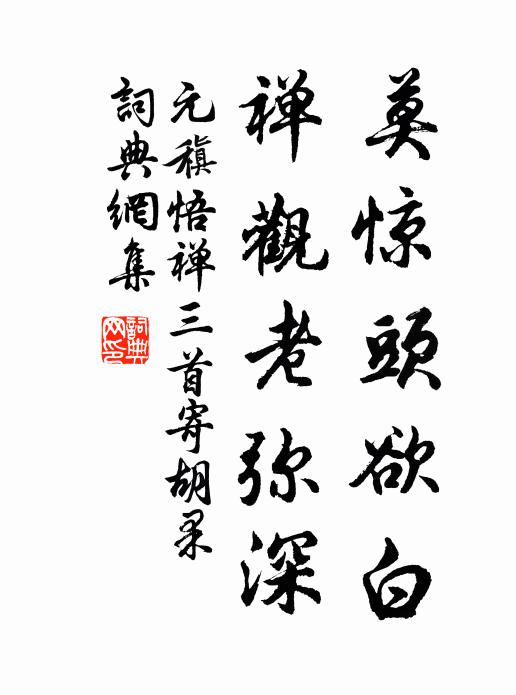 莫惊頭欲白
禅觀老弥深
元稹悟禅三首寄胡果
詞典網集
詞典网印